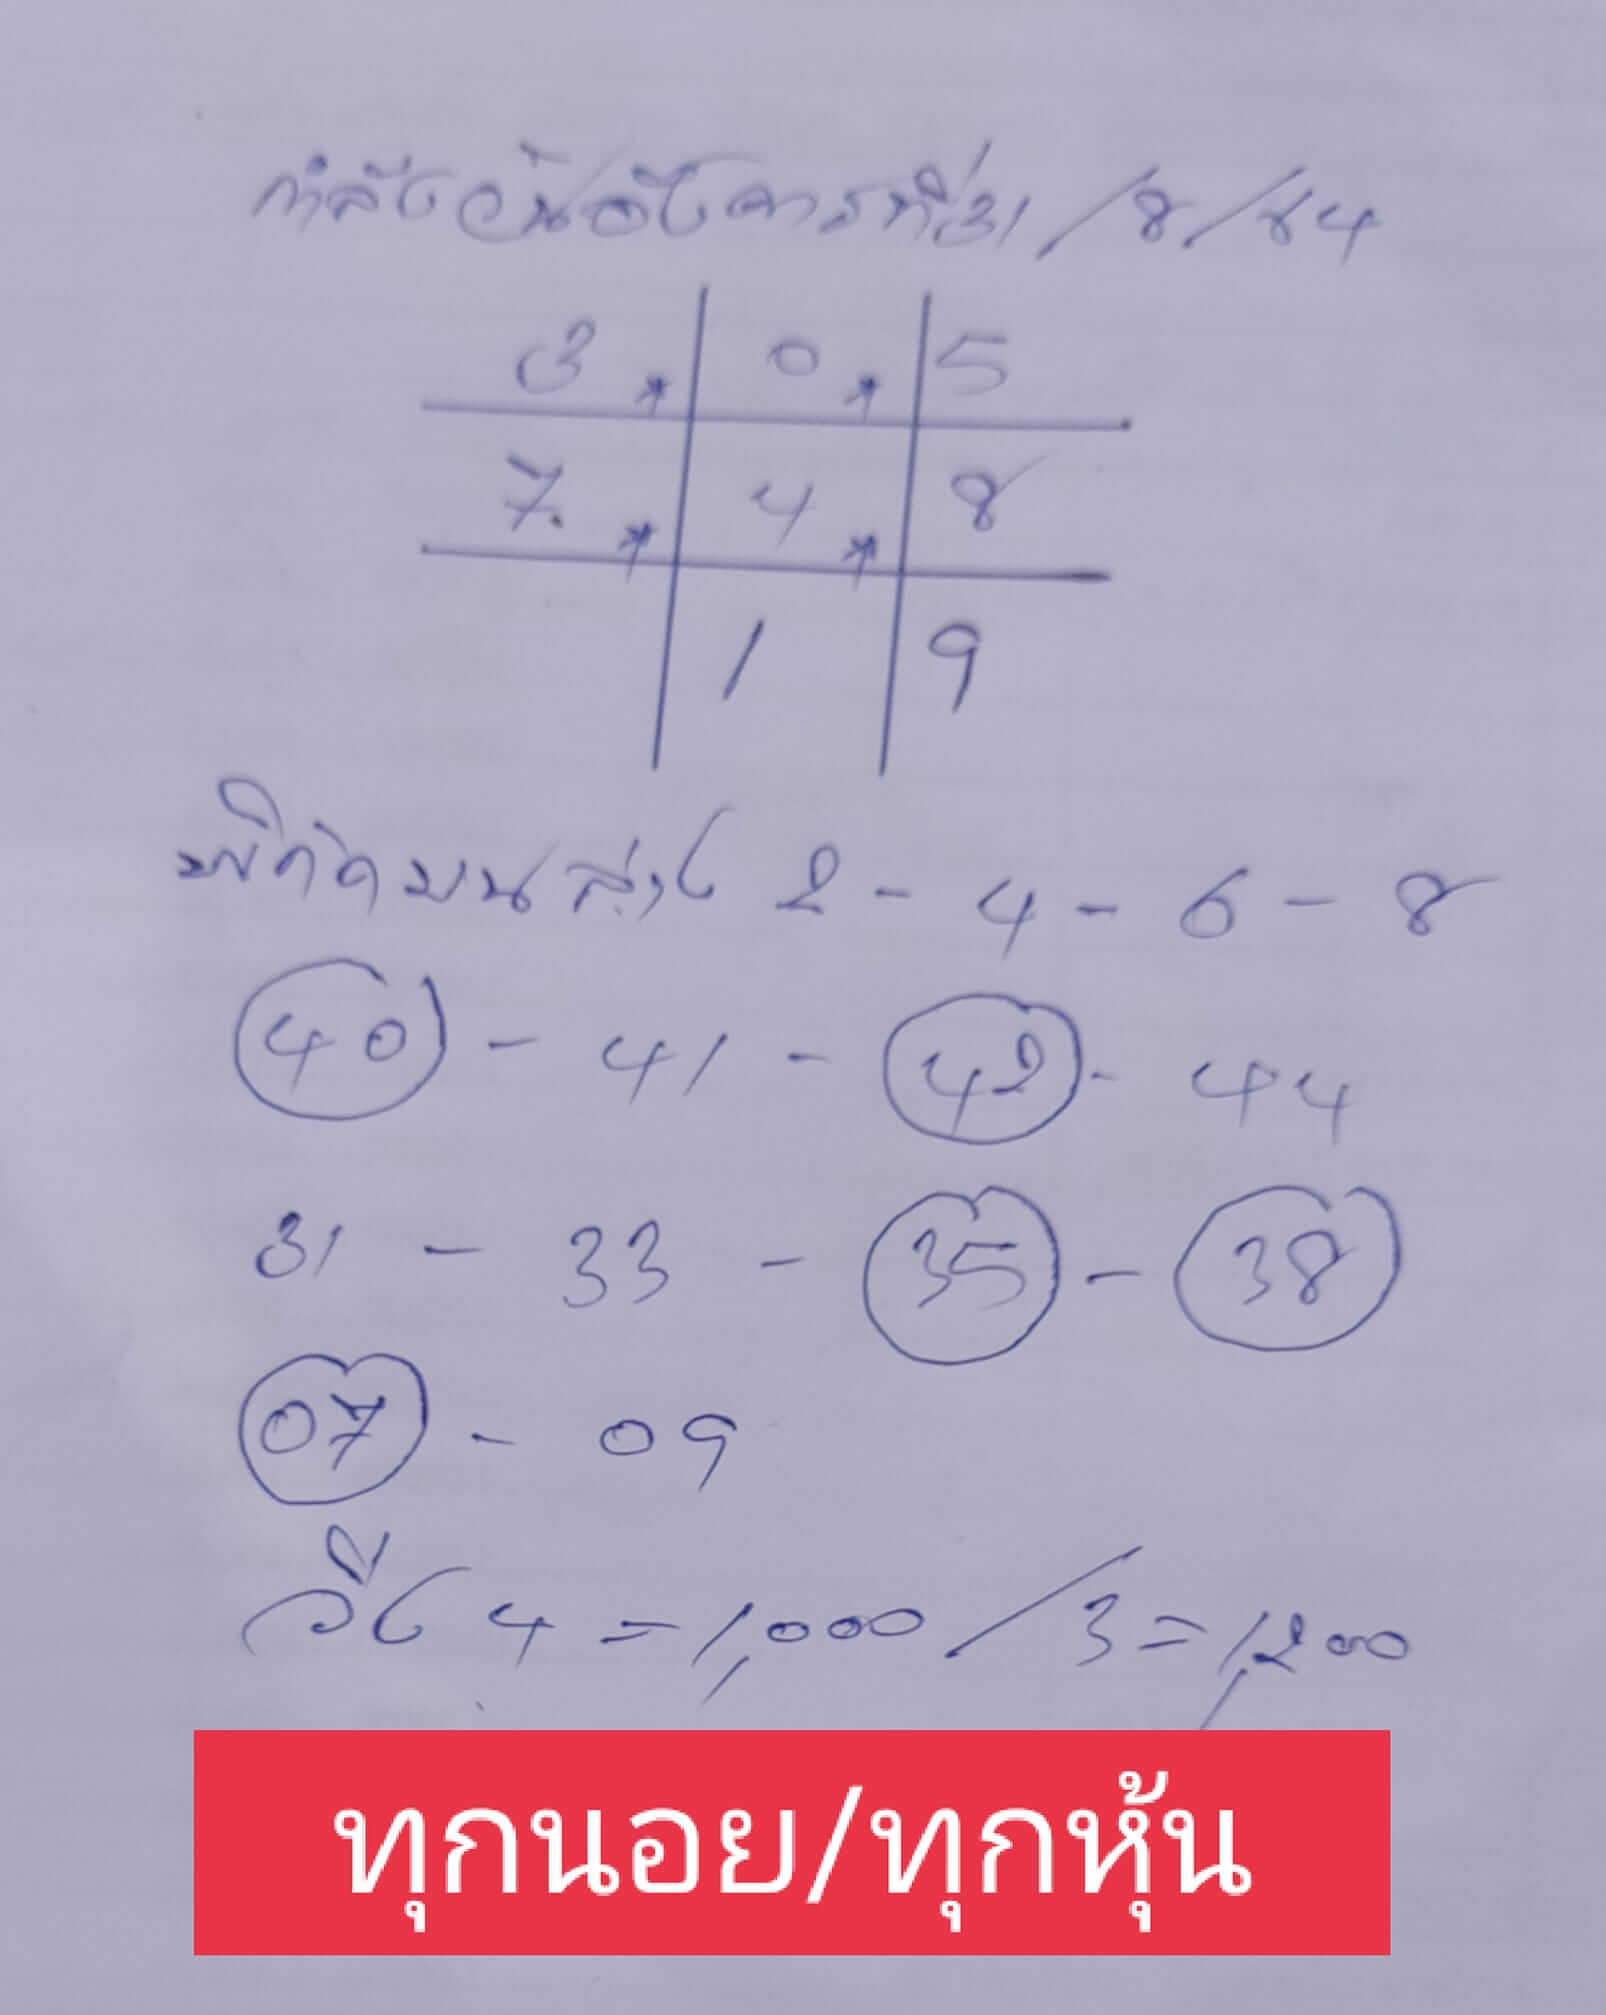 กำลังวันอังคารที่31/8/64
3 * 0 * 5
7. * 4 * 8
1 9
พิกัดบนล่าง 2 - 4 - 6 - 8
40 - 41 - 42 - 44
31 - 33 - 35 - 38
07 - 09
วิ่ง 4 = 1,000 / 3 = 1,200
ทุกนอย/ทุกหุ้น